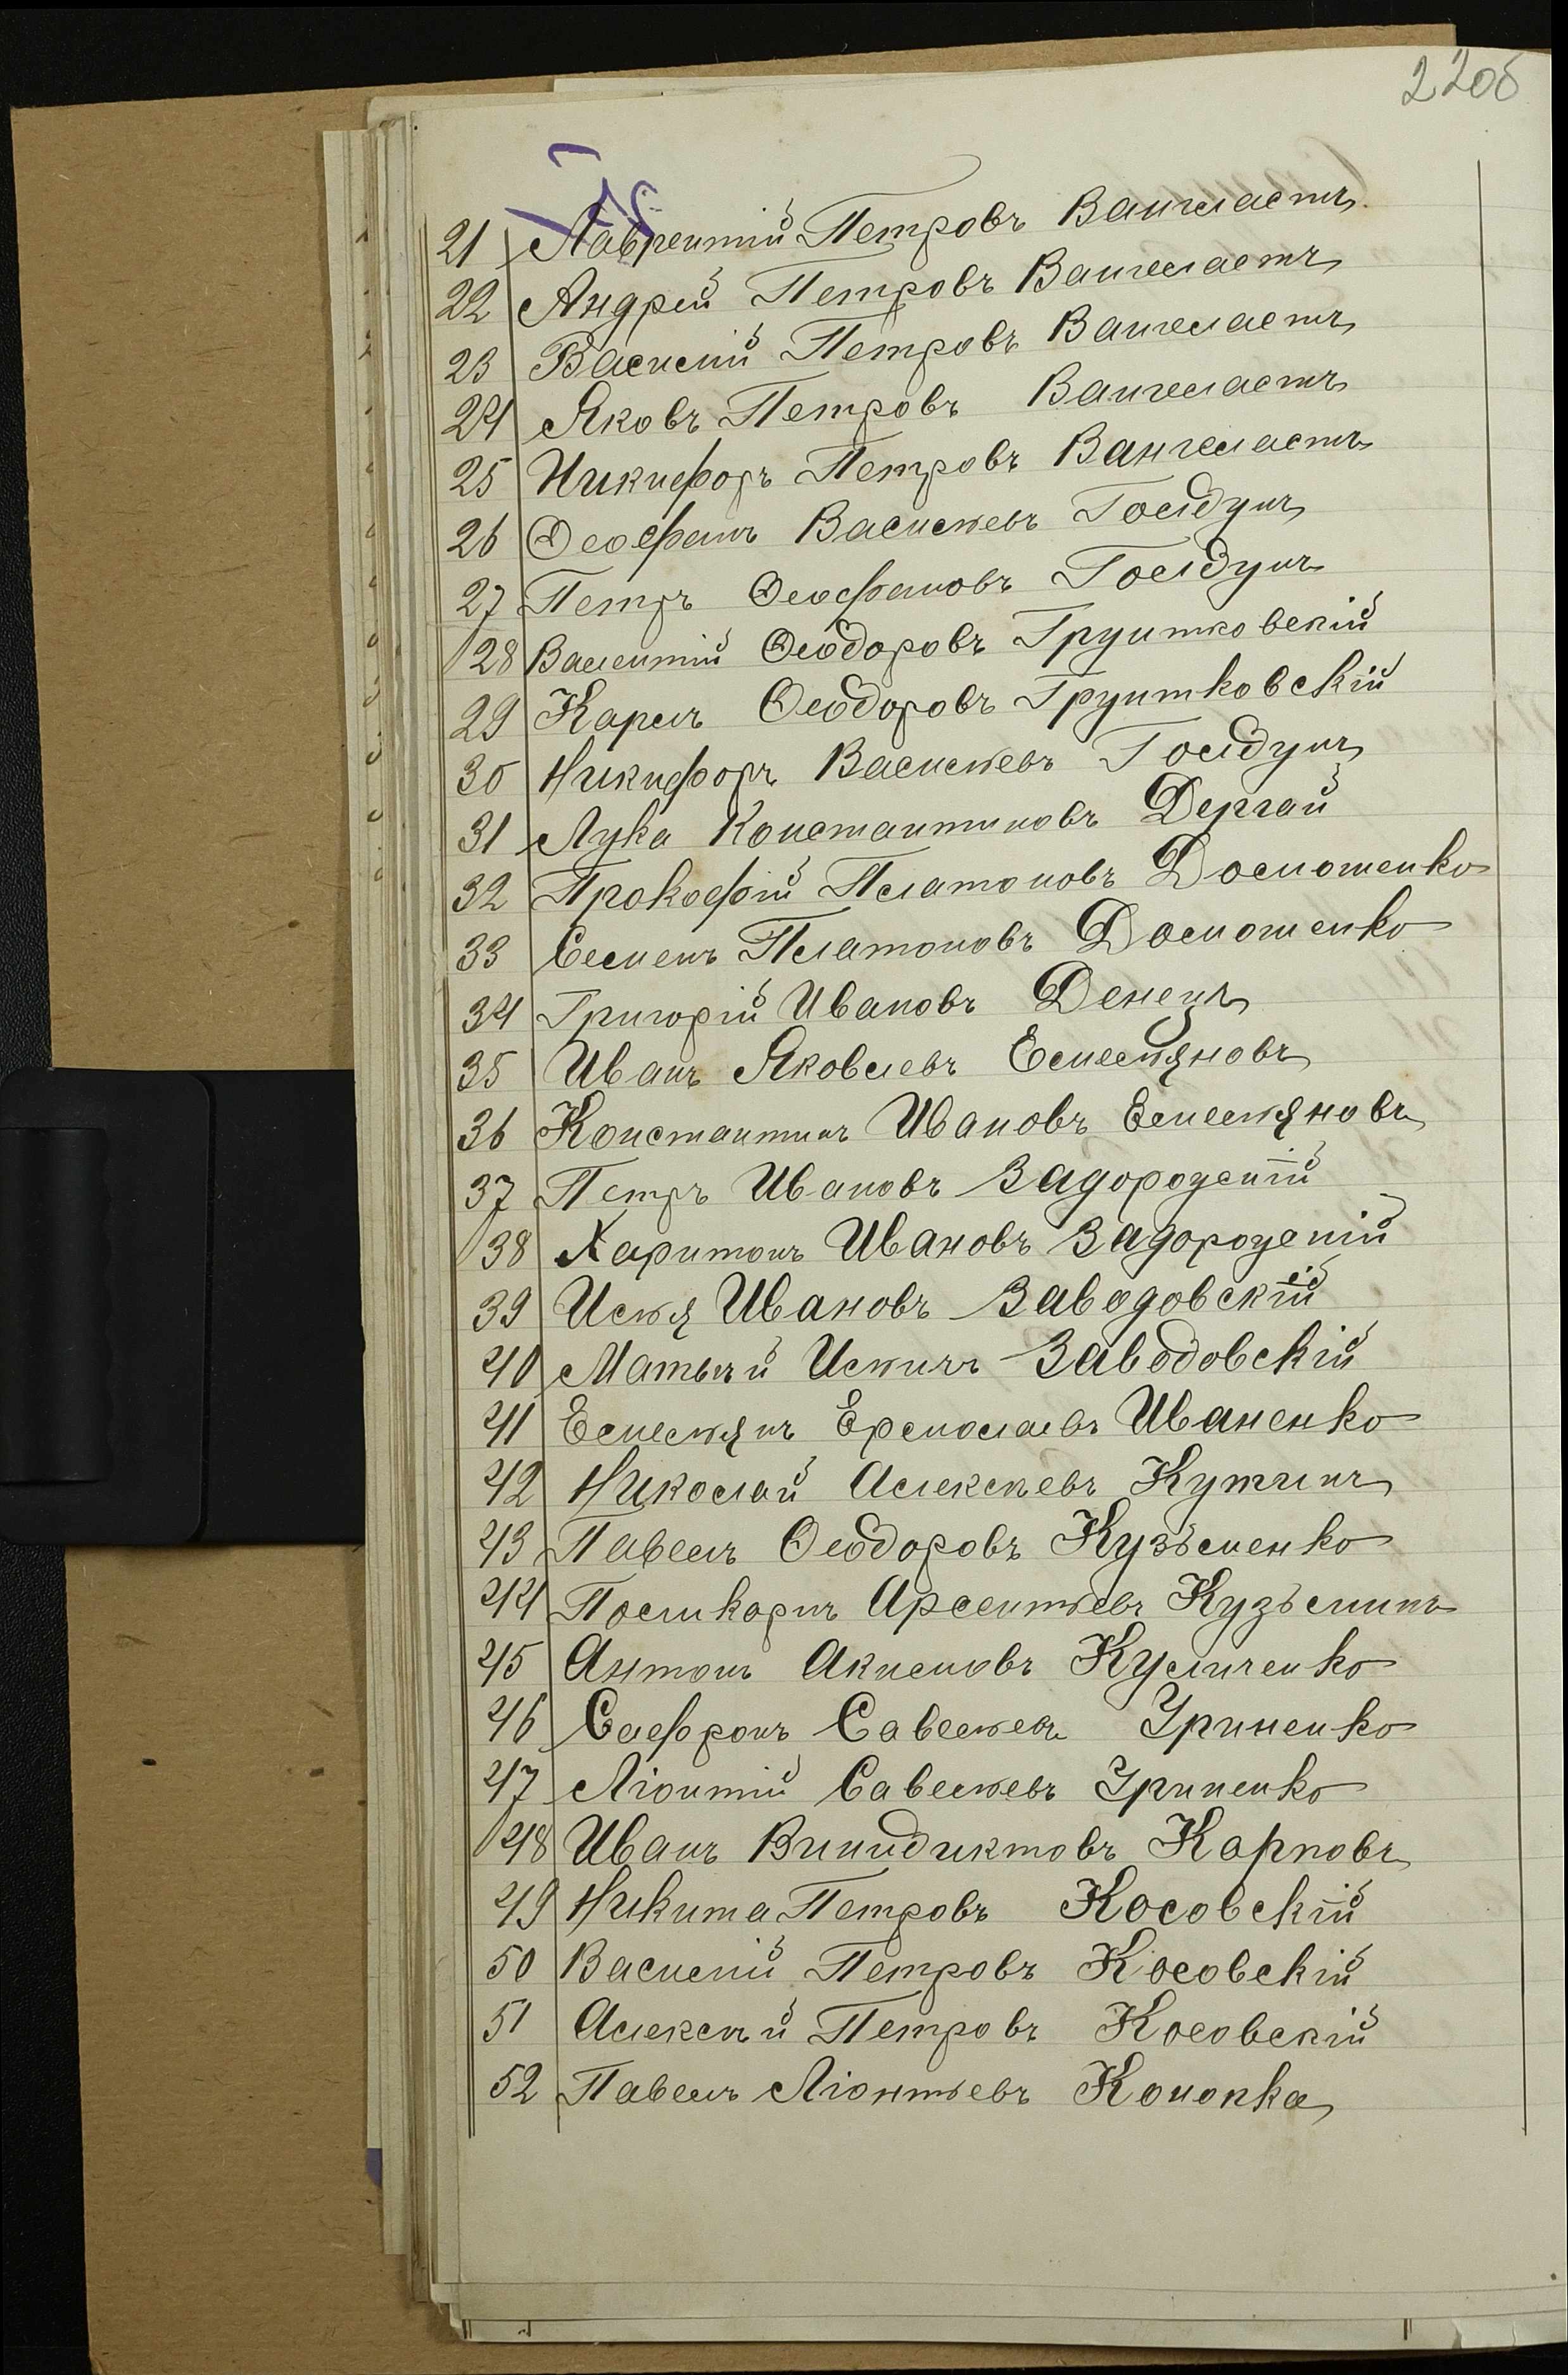 22об
21 Лаврентій Петровъ Вангеластъ
22 Андрей Петровъ Вангеластъ
23 Василій Петровъ Вангеластъ
24 Яковъ Петровъ Вангеластъ
25 Никифоръ Петровъ Вангеластъ
26 Ѳеофанъ Васильевъ Голдунъ
27 Петръ Ѳеофановъ Голдунъ
28 Валентій Ѳеодоровъ Грунтковскій
29 Карлъ Ѳеодоровъ Грунтковскій
30 Никифоръ Васильевъ Голдунъ
31 Лука Константиновъ Дергай
32 Прокофій Платоновъ Домошенко
33 Семенъ Платоновъ Домошенко
34 Григорій Ивановъ Денецъ
35 Иванъ Яковлевъ Емельяновъ
36 Константинъ Ивановъ Емельяновъ
37 Петръ Ивановъ Задорожній
38 Харитонъ Ивановъ Задорожній
39 Илья Ивановъ Заводовскій
40 Матвѣй Ильичъ Заводовскій
41 Емельянъ Ермолаевъ Иваненко
42 Николай Алексѣевъ
43 Павелъ Ѳеодоровъ Кузьменко
44 Поликарпъ Арсентьевъ Кузьминъ
45 Антонъ Акимовъ Куличенко
46 Сафронъ Савельевъ Уриненко
47 Ліонтій Савельевъ Уриненко
48 Иванъ Винидиктовъ Карповъ
49 Никита Петровъ Косовскій
50 Василій Петровъ Косовскій
51 Алексѣй Петровъ Косовскій
52 Павелъ Ліонтьевъ Конопка